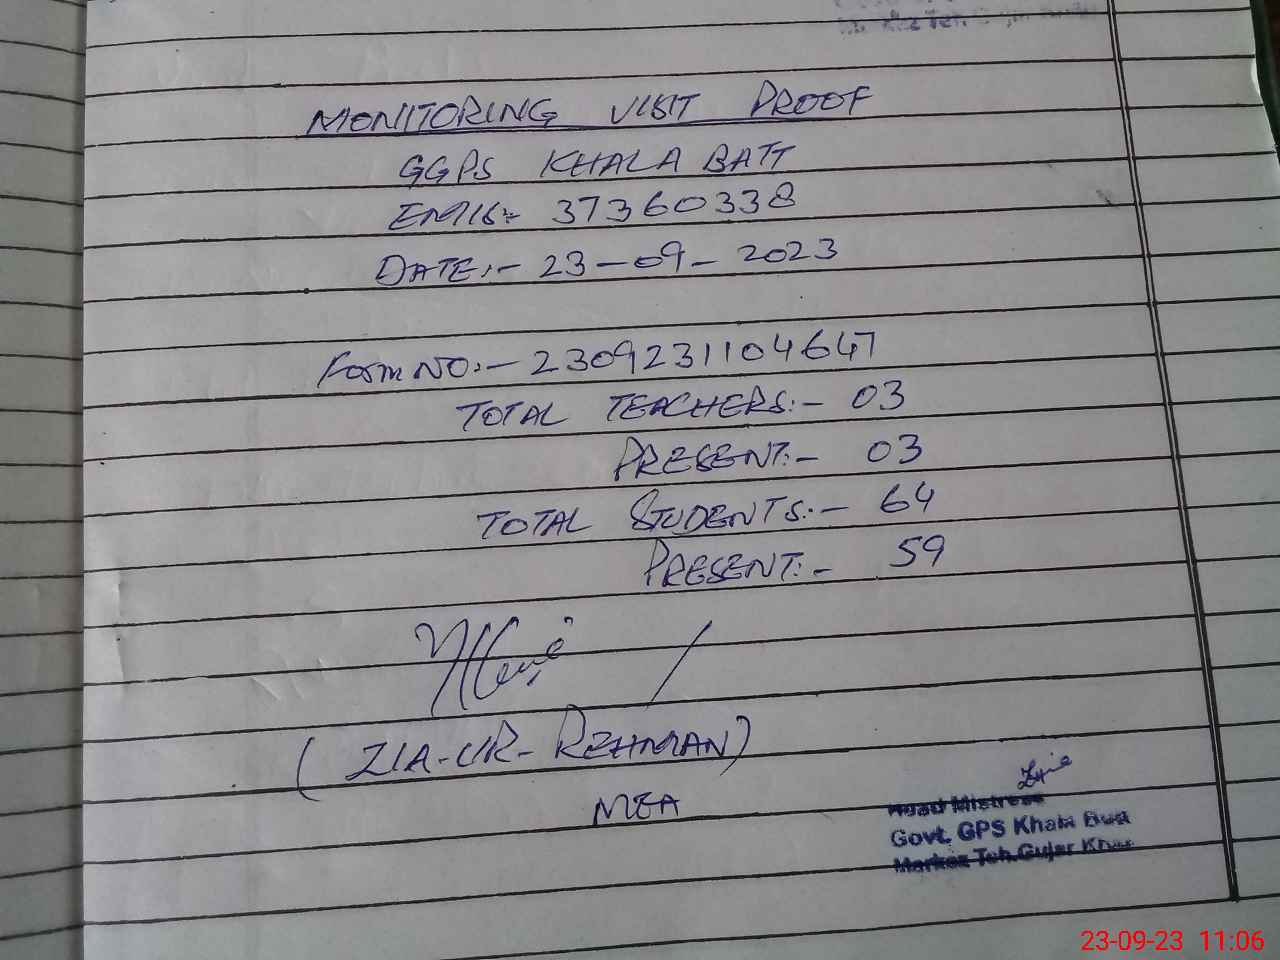 MONITORING VISIT PROOF
GGPS KHALA BATT
EMIS:- 37360338
DATE:- 23-09-2023
Form NO:- 2309231104647
TOTAL TEACHERS:- 03
PRESENT:- 03
TOTAL STUDENTS:- 64
PRESENT:- 59
(ZIA-UR-REHMAN)
MEA
Head Mistress
Govt. GPS Khala
Markez Teh.Gujar Khan
23-09-23 11:06